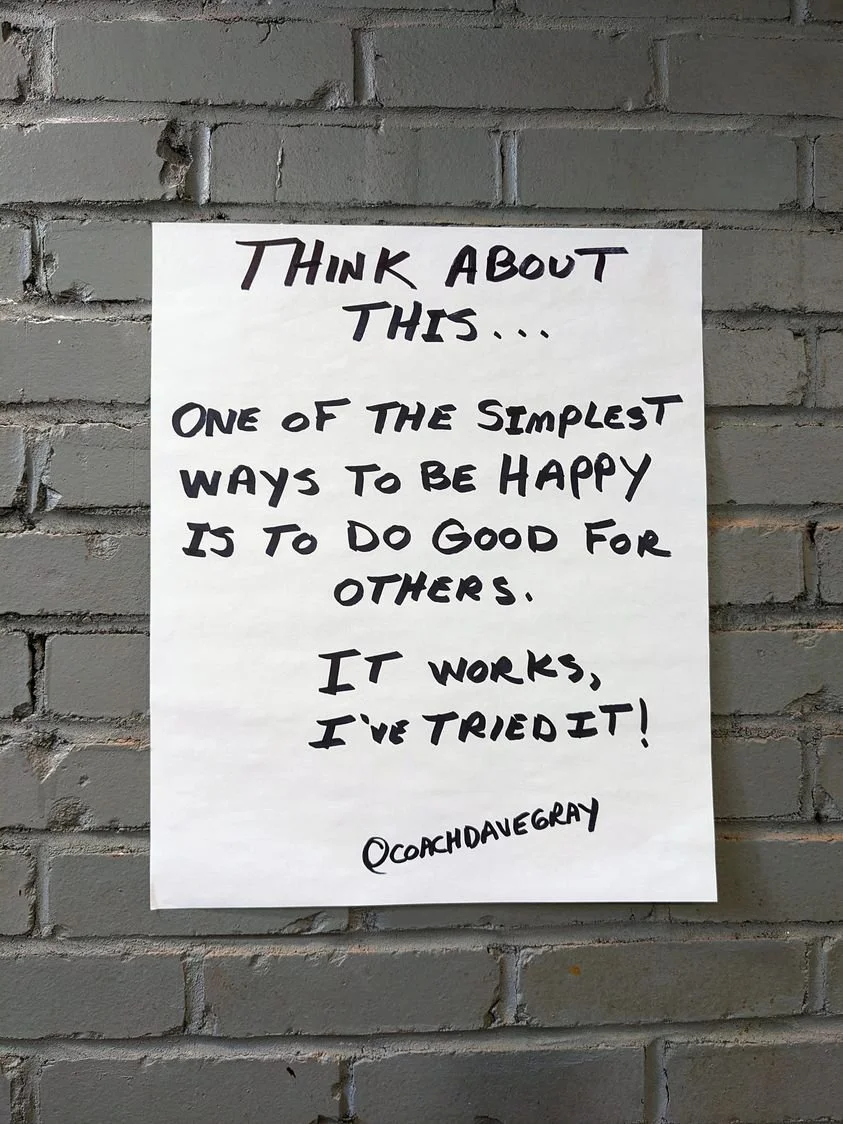 THINK ABOUT
THIS...
ONE OF THE SIMPLEST
WAYS TO BE HAPPY
IS TO DO GOOD FOR
OTHERS.
IT WORKS,
I'VE TRIED IT!
@COACHDAVEGRAY